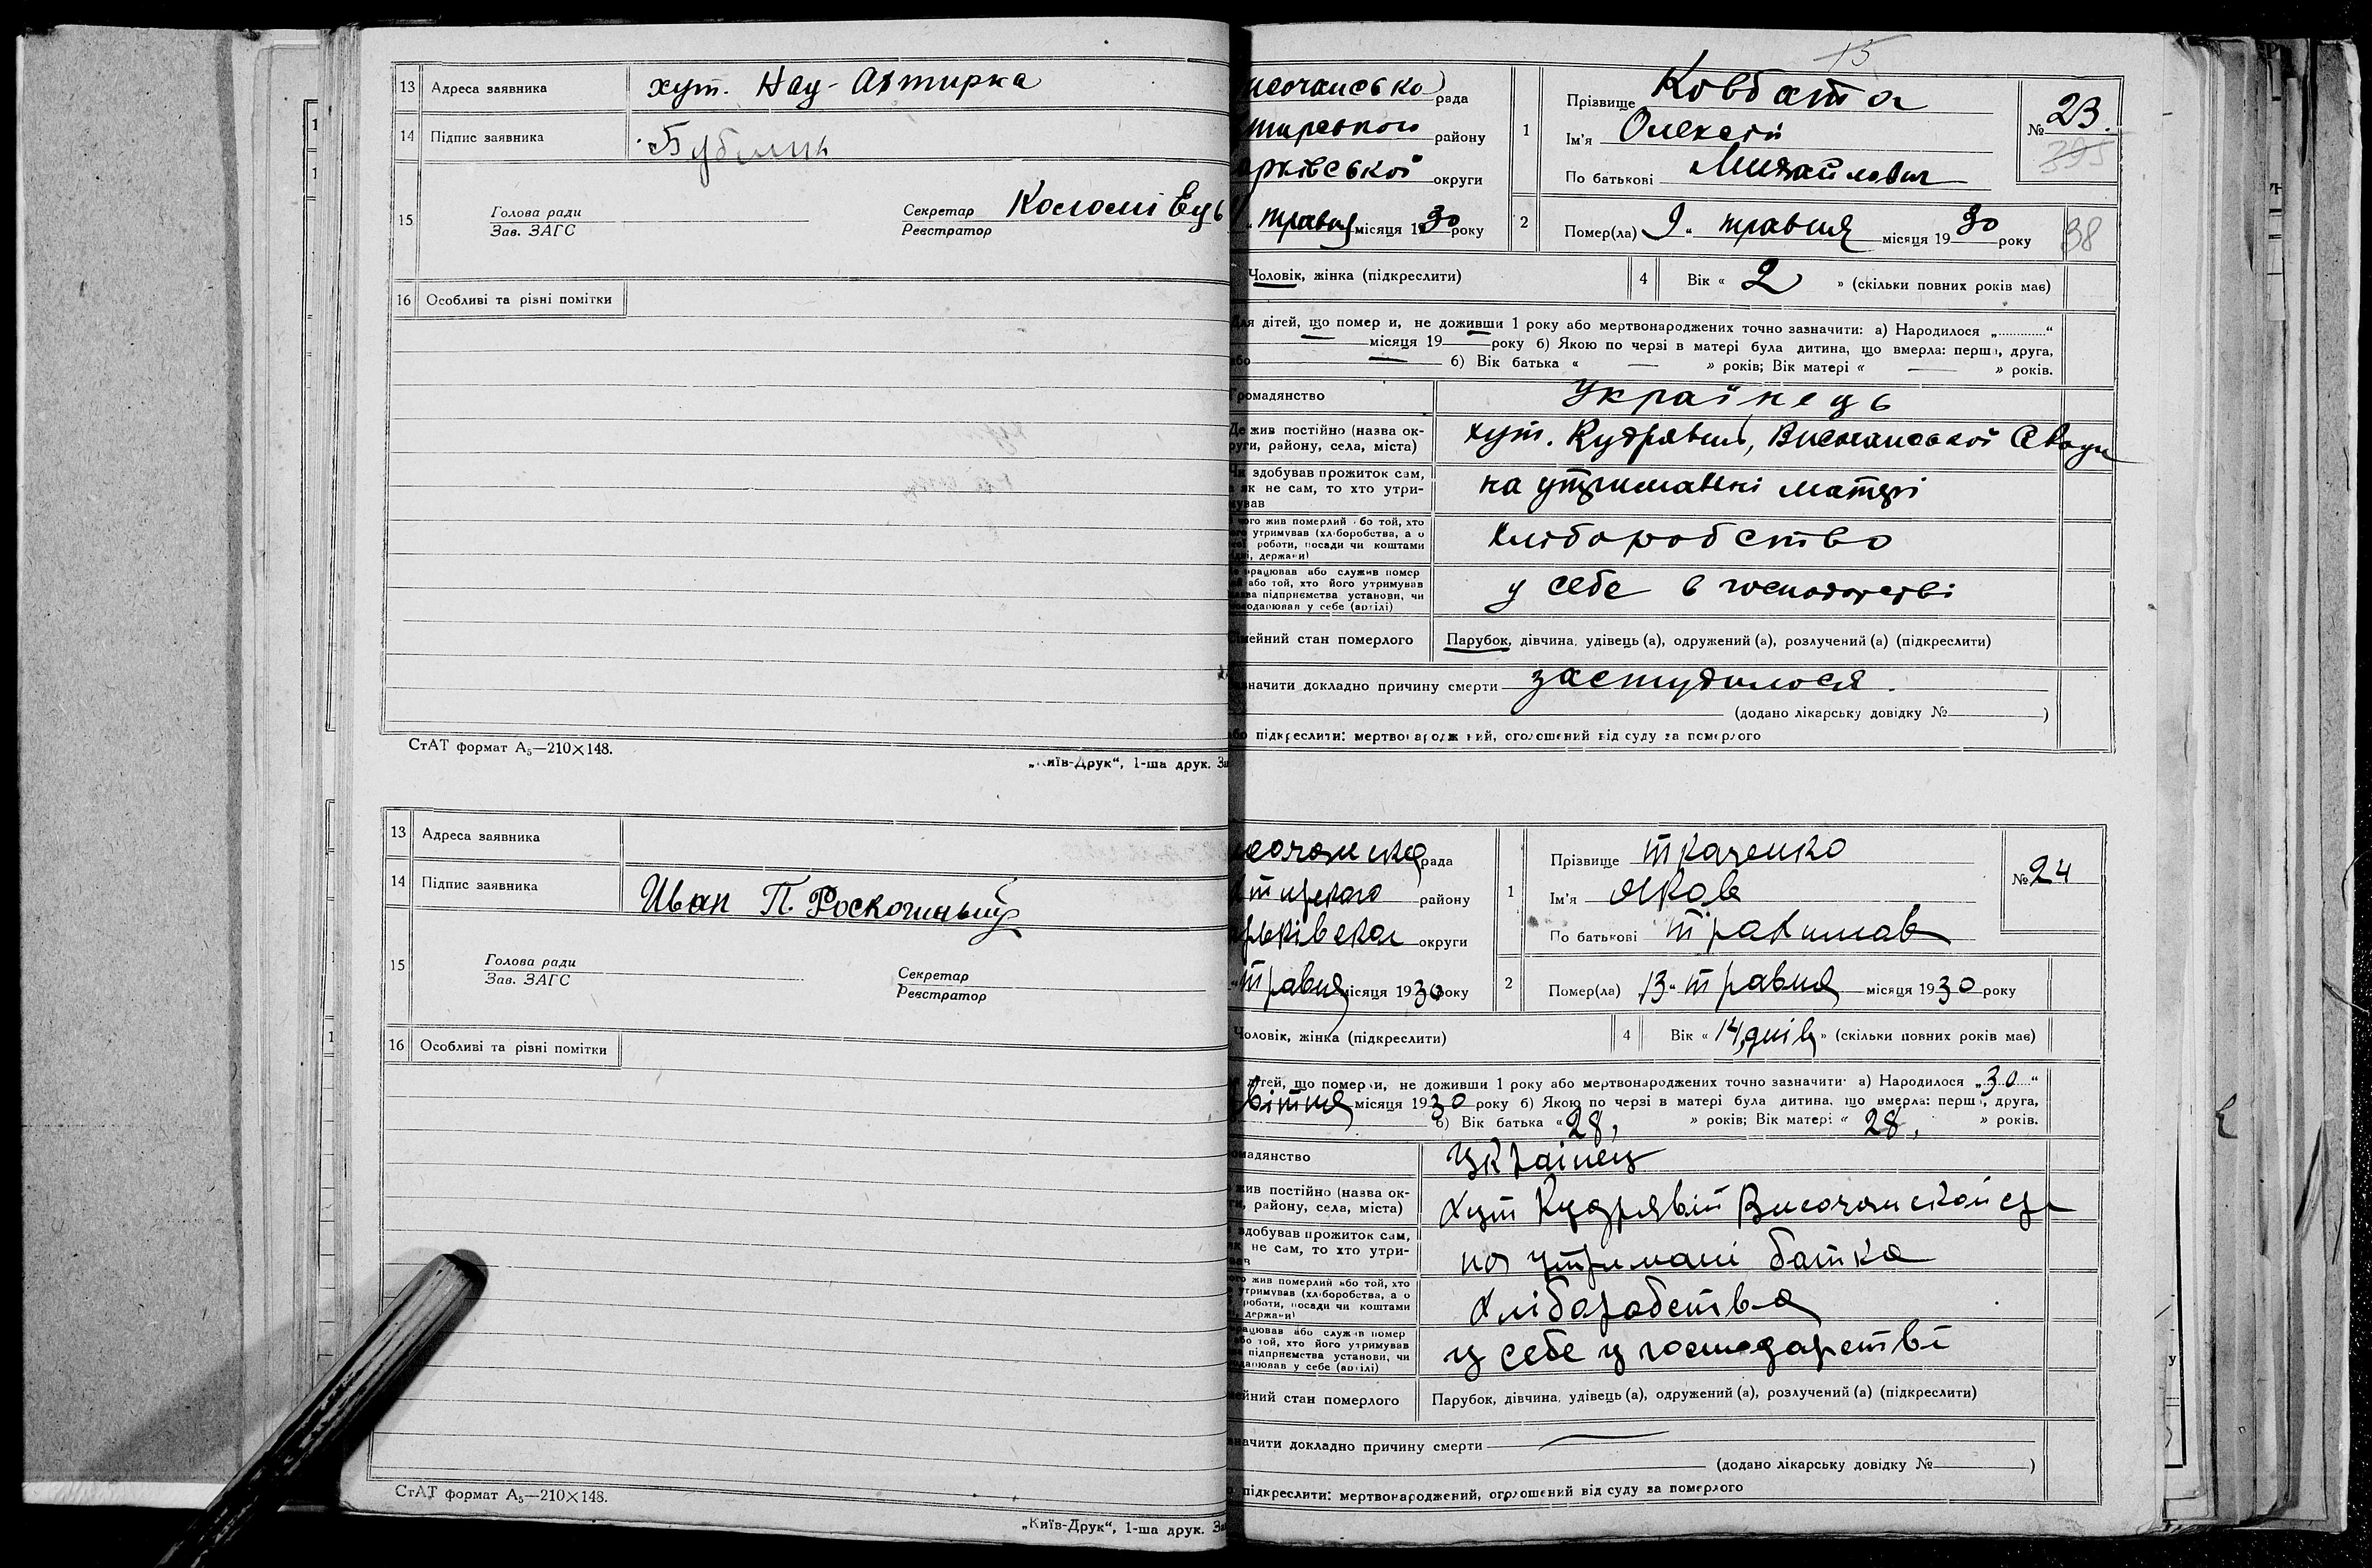 13 Адреса заявника хут. Нау-Ахтирка
14 Підпис заявника
15 Голова ради
Зав. ЗАГС
Секретар
Реєстратор
Коломієць
16 Особливі та різні помітки
СтАТ формат А₅—210×148.
„Київ-Друк“, 1-ша друк. За
13 Адреса заявника
14 Підпис заявника Иван П.
15 Голова ради
Зав. ЗАГС
Секретар
Реєстратор
16 Особливі та різні помітки
СтАТ формат А₅—210×148.
„Київ-Друк“, 1-ша друк. За
15
рада
району
округи
травня місяця 1930 року
1 Прізвище Ковбаста
Ім'я Олексій
По батькові Михайлович
№ 23.
395
2 Помер(ла) 9 „ травня місяця 1930 року
38
Чоловік, жінка (підкреслити)
4 Вік « 2 » (скільки повних років має)
Для дітей, що померли, не доживши 1 року або мертвонароджених точно зазначити: а) Народилося „ “
— місяця 19— року б) Якою по черзі в матері була дитина, що вмерла: перша, друга,
або — б) Вік батька « — » років; Вік матері « — » років.
Громадянство Українець
Де жив постійно (назва ок-
руги, району, села, міста)
хут. Кудрявий, Височанської с/ради
Чи здобував прожиток сам,
а як не сам, то хто утри-
мував
на утриманні матері
чого жив померлий або той, хто
його утримував (хліборобства, а о
роботи, посади чи коштами
держави)
хліборобство
Де працював або служив помер
або той, хто його утримував
назва підприємства установи, чи
господарював у себе (артілі)
у себе в господарстві
Сімейний стан померлого Парубок, дівчина, удівець (а), одружений (а), розлучений (а) (підкреслити)
Зазначити докладно причину смерти застудилося.
(додано лікарську довідку № )
або підкреслити: мертвонароджений, оголошений від суду за померлого
рада
району
округи
травня місяця 1930 року
1 Прізвище Ткаченко
Ім'я Яков
По батькові Трахимов
№ 24
2 Помер(ла) 13 „ травня місяця 1930 року
Чоловік, жінка (підкреслити)
4 Вік « 14 днів » (скільки повних років має)
дітей, що померли, не доживши 1 року або мертвонароджених точно зазначити: а) Народилося „30“
місяця 1930 року б) Якою по черзі в матері була дитина, що вмерла: перша, друга,
б) Вік батька «28, » років; Вік матері « 28, » років.
Громадянство українец
жив постійно (назва ок-
руги, району, села, міста)
Хут Кудрявий
здобував прожиток сам,
як не сам, то хто утри-
на утримані батка
чого жив померлий або той, хто
утримував (хліборобства, а о
роботи, посади чи коштами
держави)
хліборобства
працював або служив помер
або той, хто його утримував
підприємства установи, чи
господарював у себе (артілі)
у себе у господарстві
Сімейний стан померлого Парубок, дівчина, удівець (а), одружений (а), розлучений (а) (підкреслити)
Зазначити докладно причину смерти —
(додано лікарську довідку № )
підкреслити: мертвонароджений, оголошений від суду за померлого